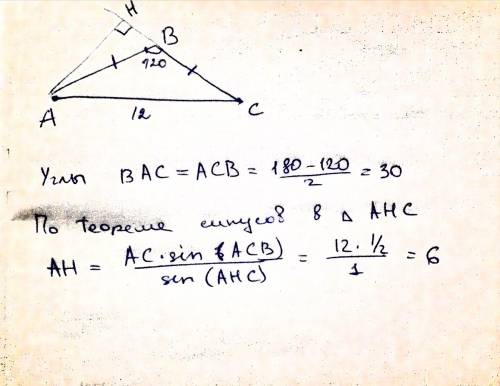 H
B
120
A
12
C
Углы BAC = ACB = (180-120)/2 = 30
По теореме синусов в Δ AHC
AH = (AC · sin (ACB))/(sin (AHC)) = (12 · 1/2)/1 = 6